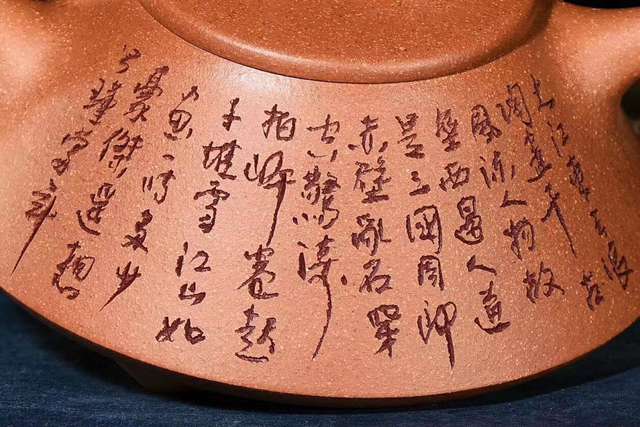 大江東去浪
淘盡千古
風流人物故
壘西邊人道
是三國周郎
赤壁亂石穿
空驚濤
拍岸卷起
千堆雪江山如
画一時多少
豪傑遥想
公瑾當年